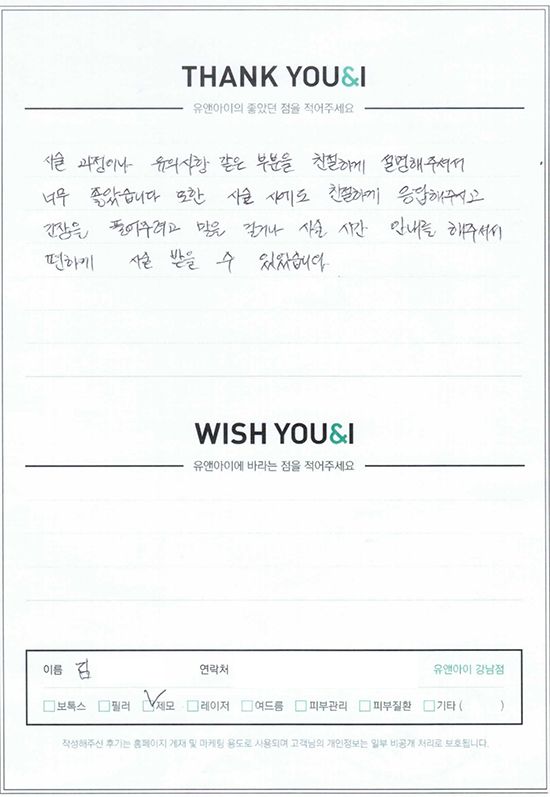 THANK YOU&I
유앤아이의 좋았던 점을 적어주세요
시술 과정이나 유의사항 같은 부분을 친절하게 설명해주셔서
너무 좋았습니다 또한 시술 시에도 친절하게 응답해주시고
긴장을 풀어주려고 말을 걸거나 시술 시간 안내를 해주셔서
편하게 시술 받을 수 있었습니다.
WISH YOU&I
유앤아이에 바라는 점을 적어주세요
이름 김 연락처 유앤아이 강남점
보톡스 필러 제모 레이저 여드름 피부관리 피부질환 기타 ( )
작성해주신 후기는 홈페이지 게재 및 마케팅 용도로 사용되며 고객님의 개인정보는 일부 비공개 처리로 보호됩니다.